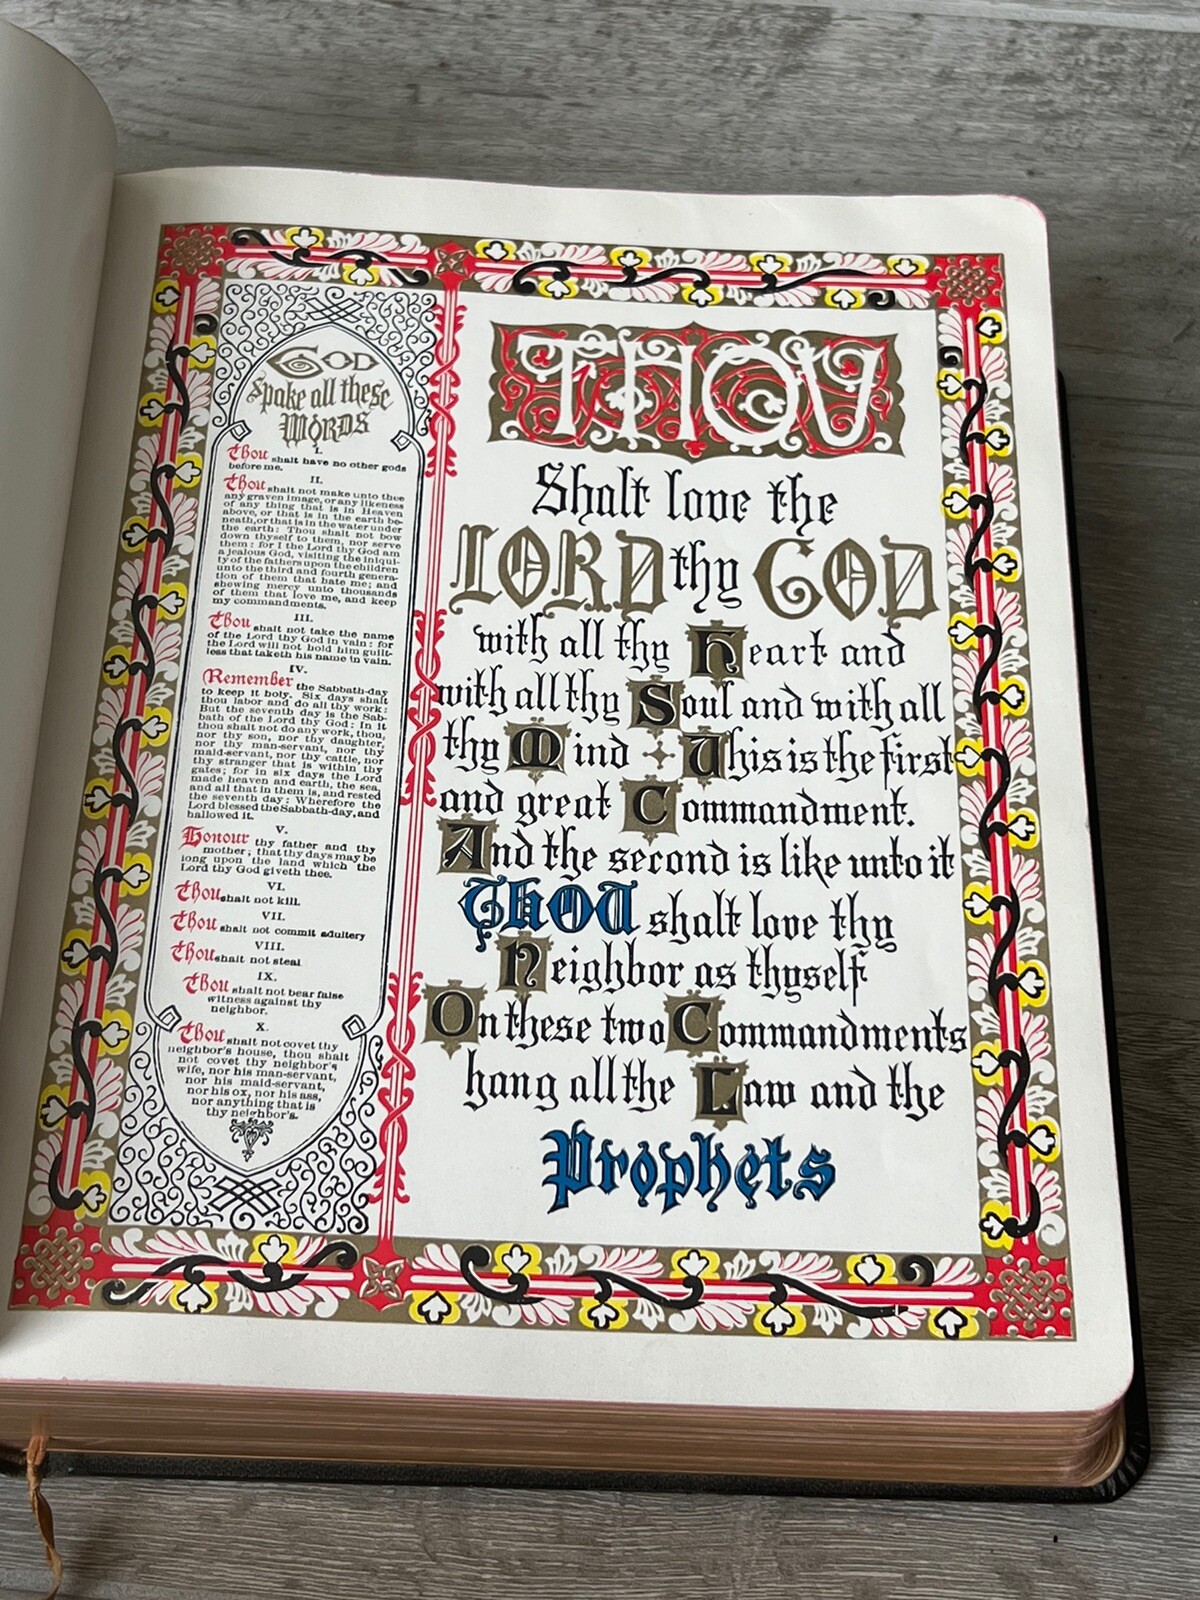 GOD
Spake all these
WORDS
I.
Thou shalt have no other gods
before me.
II.
Thou shalt not make unto thee
any graven image, or any likeness
of any thing that is in Heaven
above, or that is in the earth be-
neath, or that is in the water under
the earth: Thou shalt not bow
down thyself to them, nor serve
them: for I the Lord thy God am
a jealous God, visiting the iniqui-
ty of the fathers upon the children
unto the third and fourth genera-
tion of them that hate me; and
shewing mercy unto thousands
of them that love me, and keep
my commandments.
III.
Thou shalt not take the name
of the Lord thy God in vain: for
the Lord will not hold him guilt-
less that taketh his name in vain.
IV.
Remember the Sabbath-day
to keep it holy. Six days shalt
thou labor and do all thy work:
But the seventh day is the Sab-
bath of the Lord thy God: In it
thou shalt not do any work, thou,
nor thy son, nor thy daughter,
nor thy man-servant, nor thy
maid-servant, nor thy cattle, nor
thy stranger that is within thy
gates; for in six days the Lord
made heaven and earth, the sea,
and all that in them is, and rested
the seventh day: Wherefore the
Lord blessed the Sabbath-day, and
hallowed it.
V.
Honour thy father and thy
mother; that thy days may be
long upon the land which the
Lord thy God giveth thee.
VI.
Thou shalt not kill.
VII.
Thou shalt not commit adultery
VIII.
Thou shalt not steal
IX.
Thou shalt not bear false
witness against thy
neighbor.
X.
Thou shalt not covet thy
neighbor's house, thou shalt
not covet thy neighbor's
wife, nor his man-servant,
nor his maid-servant,
nor his ox, nor his ass,
nor anything that is
thy neighbor's.
THOU
Shalt love the
LORD thy GOD
with all thy Heart and
with all thy Soul and with all
thy Mind This is the first
and great Commandment.
And the second is like unto it
THOU shalt love thy
Neighbor as thyself
On these two Commandments
hang all the Law and the
Prophets